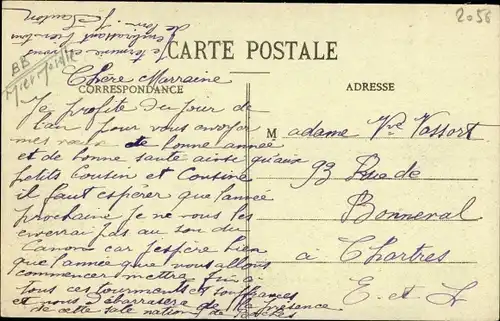 2.056
je termine en vous
embrassant bien fort
CARTE POSTALE
CORRESPONDANCE
ADRESSE
Chère Marraine
Je profite du jour de
l'an pour vous envoyer
mes vœux de bonne année
et de bonne santé ainsi qu'aux
petits Cousin et Cousine
il faut espérer que l'année
prochaine je ne vous les
enverrai pas au son du
Canons car j'espère bien
que l'année que nous allons
commencer mettra fin à
tous ces tourments et souffrances
et nous débarrassera de la présence
de cette sale nation de
Madame Vve Vassort
93 Rue de
Bonneval
à Chartres
E. et L.